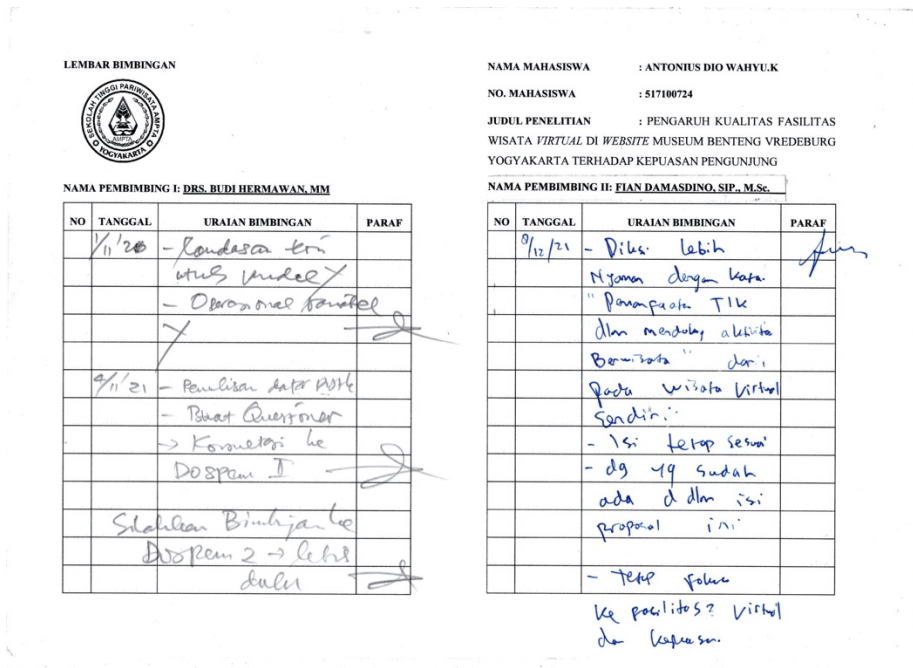 LEMBAR BIMBINGAN
SEKOLAH TINGGI PARIWISATA AMPTA
AMPTA
YOGYAKARTA
NAMA PEMBIMBING I: DRS. BUDI HERMAWAN, MM
NO TANGGAL URAIAN BIMBINGAN PARAF
1/11/'20 - Landasan teori
untuk variabel Y
- Operasional variabel
Y
4/11/'21 - Penulisan daftar
- Buat Questioner
-> Konsultasi ke
Dospem II
Silahkan Bimbingan ke
Dospem 2 ->
dulu
NAMA MAHASISWA : ANTONIUS DIO WAHYU.K
NO. MAHASISWA : 517100724
JUDUL PENELITIAN : PENGARUH KUALITAS FASILITAS
WISATA VIRTUAL DI WEBSITE MUSEUM BENTENG VREDEBURG
YOGYAKARTA TERHADAP KEPUASAN PENGUNJUNG
NAMA PEMBIMBING II: FIAN DAMASDINO, SIP., M.Sc.
NO TANGGAL URAIAN BIMBINGAN PARAF
/12/21 - Diksi lebih
Nyaman dengan kata
"Pemanfaatan TIK
dlm mendukung aktivitas
Berwisata" dari
pada wisata virtual
sendiri.
- Isi tetap sesuai
- dg yg sudah
ada d dlm isi
proposal ini
- tetap fokus
ke fasilitas2 virtual
dan kepuasan.